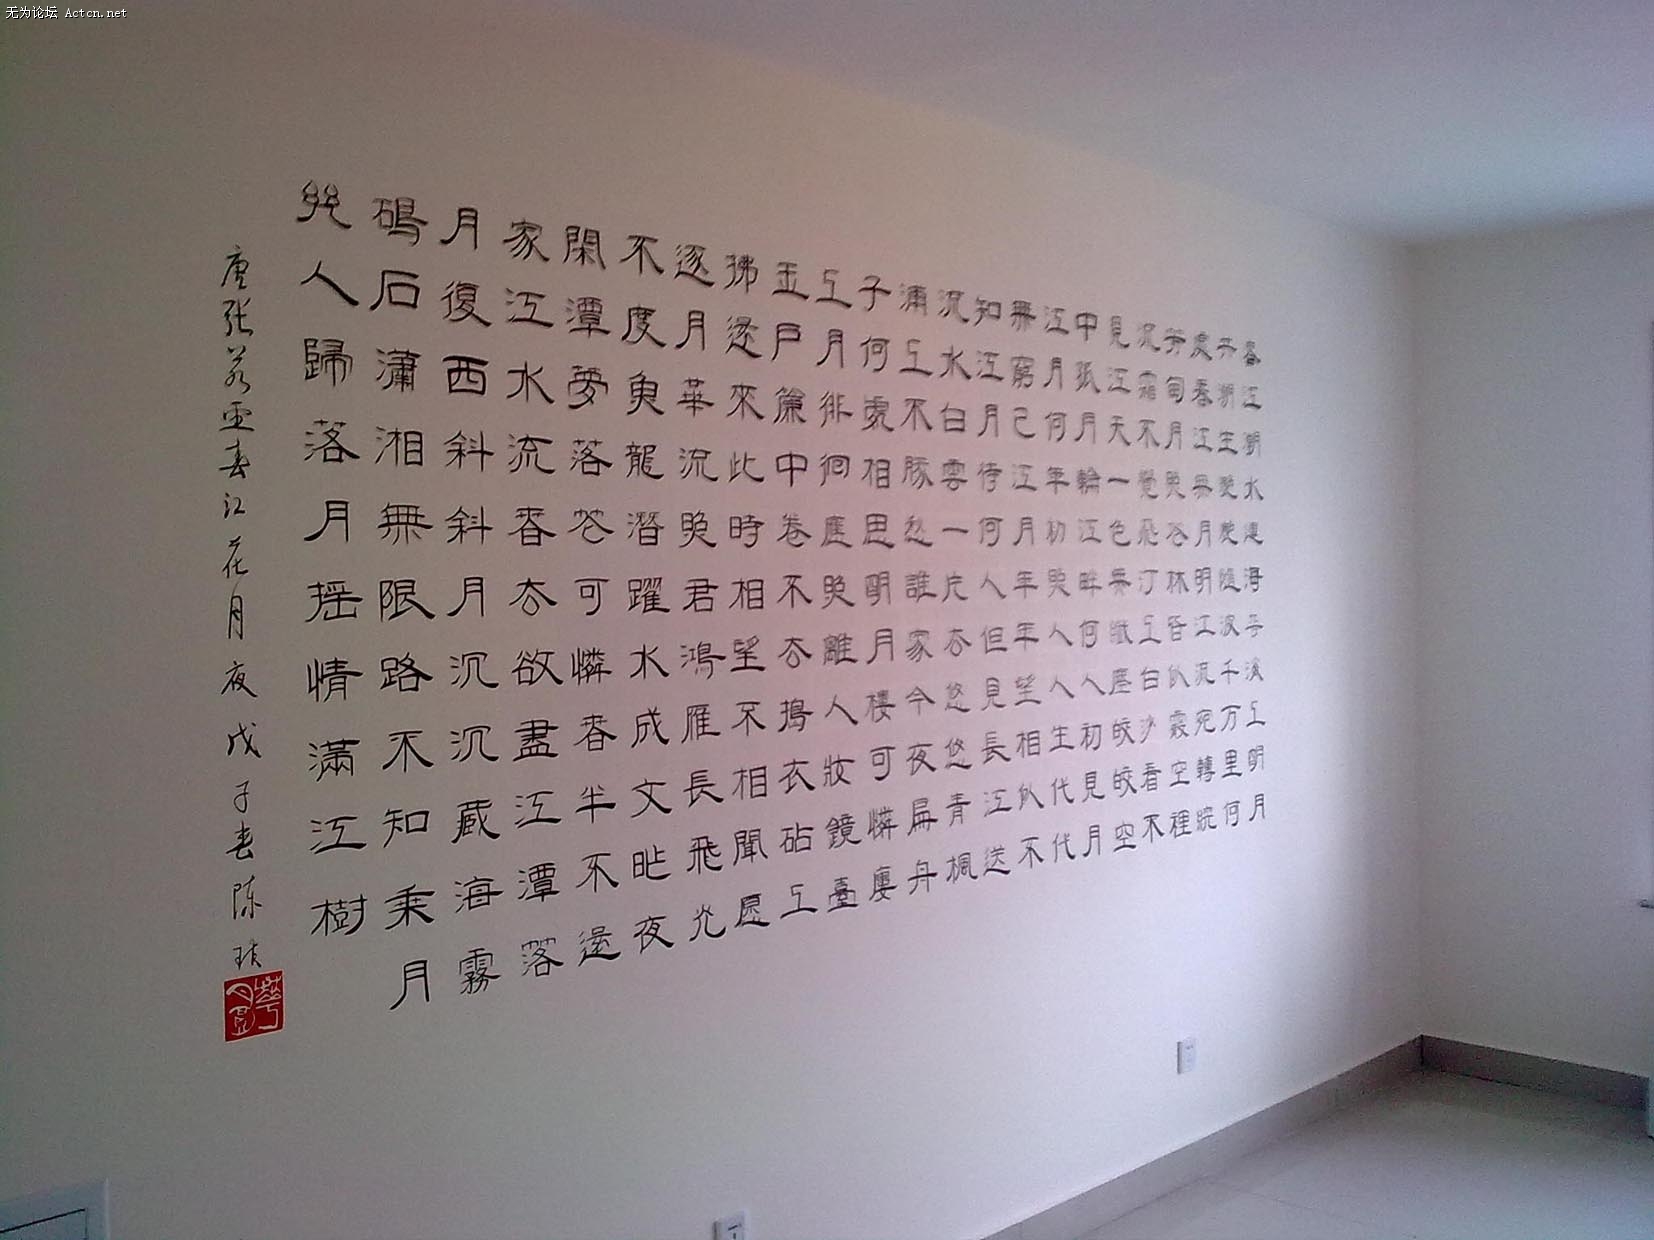 无为论坛 Actcn.net
春江潮水連海平海上明月
共潮生灩灩隨波千万里何
處春江無月明江流宛轉繞
芳甸月照花林皆似霰空裡
流霜不覺飛汀上白沙看不
見江天一色無纖塵皎皎空
中孤月輪江畔何人初見月
江月何年初照人人生代代
無窮已江月年年望相似不
知江月待何人但見長江送
流水白雲一片去悠悠青楓
浦上不勝愁誰家今夜扁舟
子何處相思明月樓可憐樓
上月徘徊應照離人妝鏡臺
玉戶簾中卷不去搗衣砧上
拂還來此時相望不相聞願
逐月華流照君鴻雁長飛光
不度魚龍潛躍水成文昨夜
閑潭夢落花可憐春半不還
家江水流春去欲盡江潭落
月復西斜斜月沉沉藏海霧
碣石瀟湘無限路不知乘月
幾人歸落月搖情滿江樹
唐张若虚春江花月夜戊子春陈